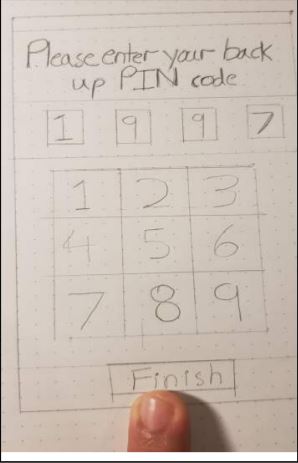 Please enter your back
up PIN code
1 9 9 7
1 2 3
4 5 6
7 8 9
Finish